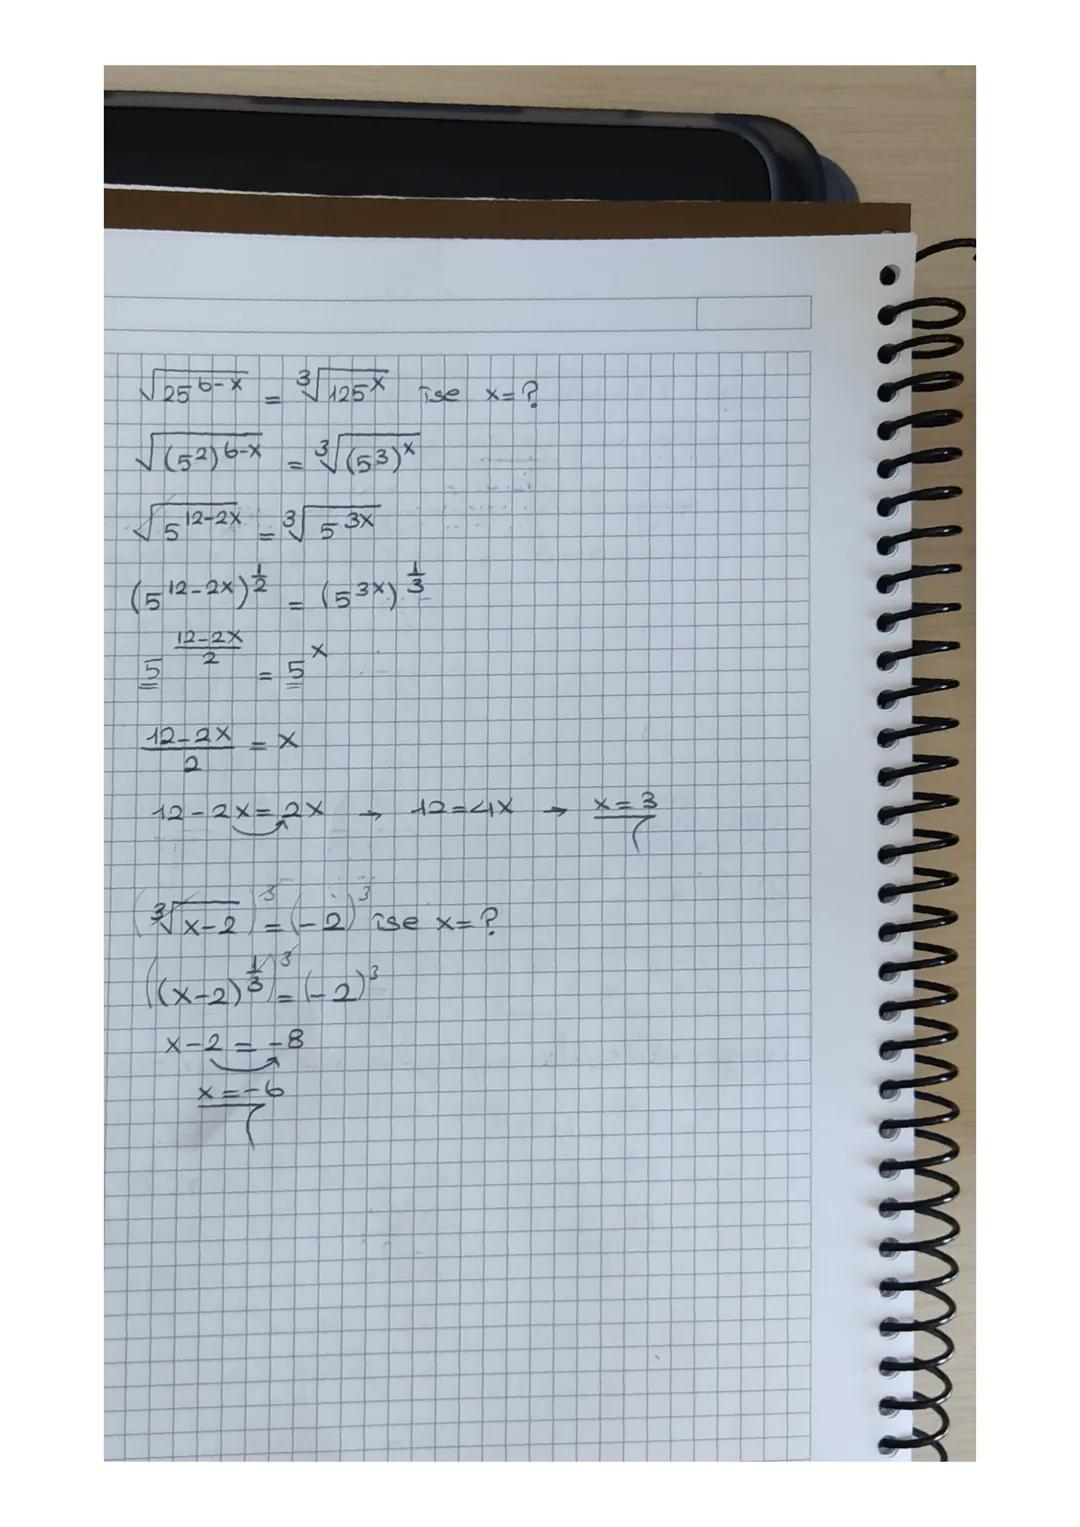 √25^(6-x) = ³√125^x ise x=?
√(5²)^(6-x) = ³√(5³)^x
√5^(12-2x) = ³√5^(3x)
(5^(12-2x))^(1/2) = (5^(3x))^(1/3)
5^((12-2x)/2) = 5^x
(12-2x)/2 = x
12-2x=2x → 12=4x → x=3
(³√x-2)³=(-2)³ ise x=?
((x-2)^(1/3))³=(-2)³
x-2=-8
x=-6